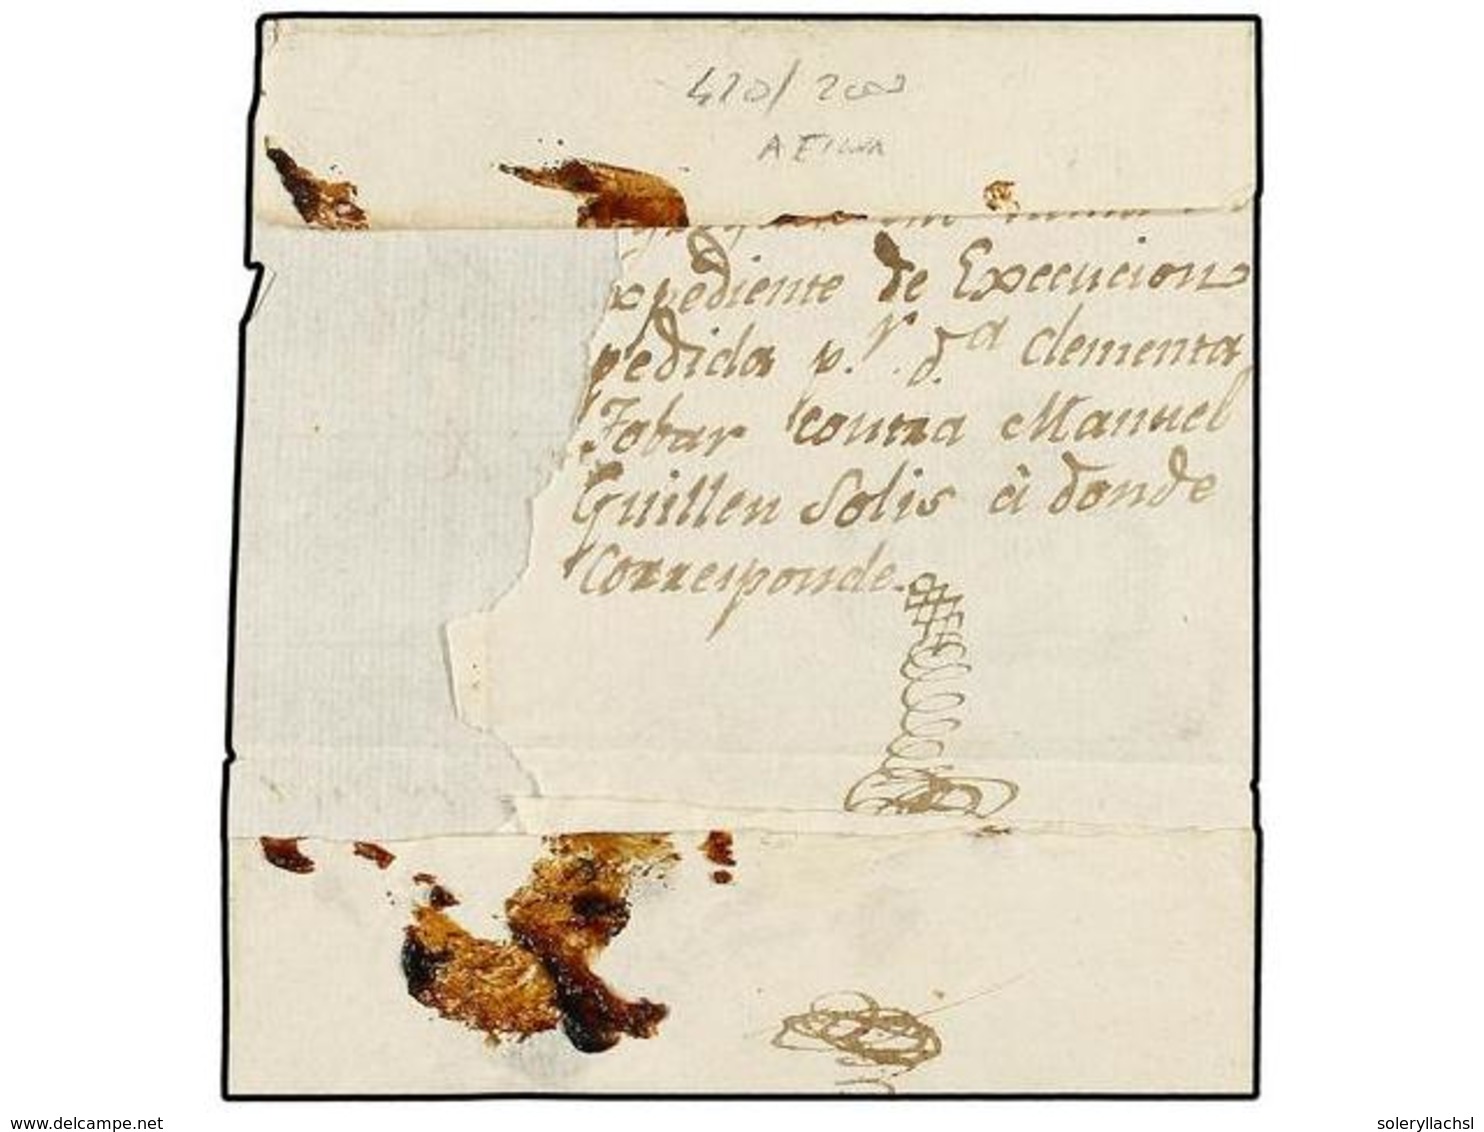 420/
xpediente de Execucion
pedida p.r d.a Clementa
Tobar contra Manuel
Guillen Solis â donde
Corresponde.
www.delcampe.net
soleryllachsl